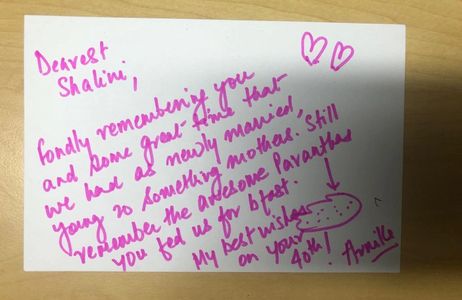 Dearest
Shalini,
Fondly remembering you
and some great time that
we had as newly married,
young 20 something mothers. Still
remember the awesome Paranthas
you fed us for bfast.
My best wishes
on your
40th!